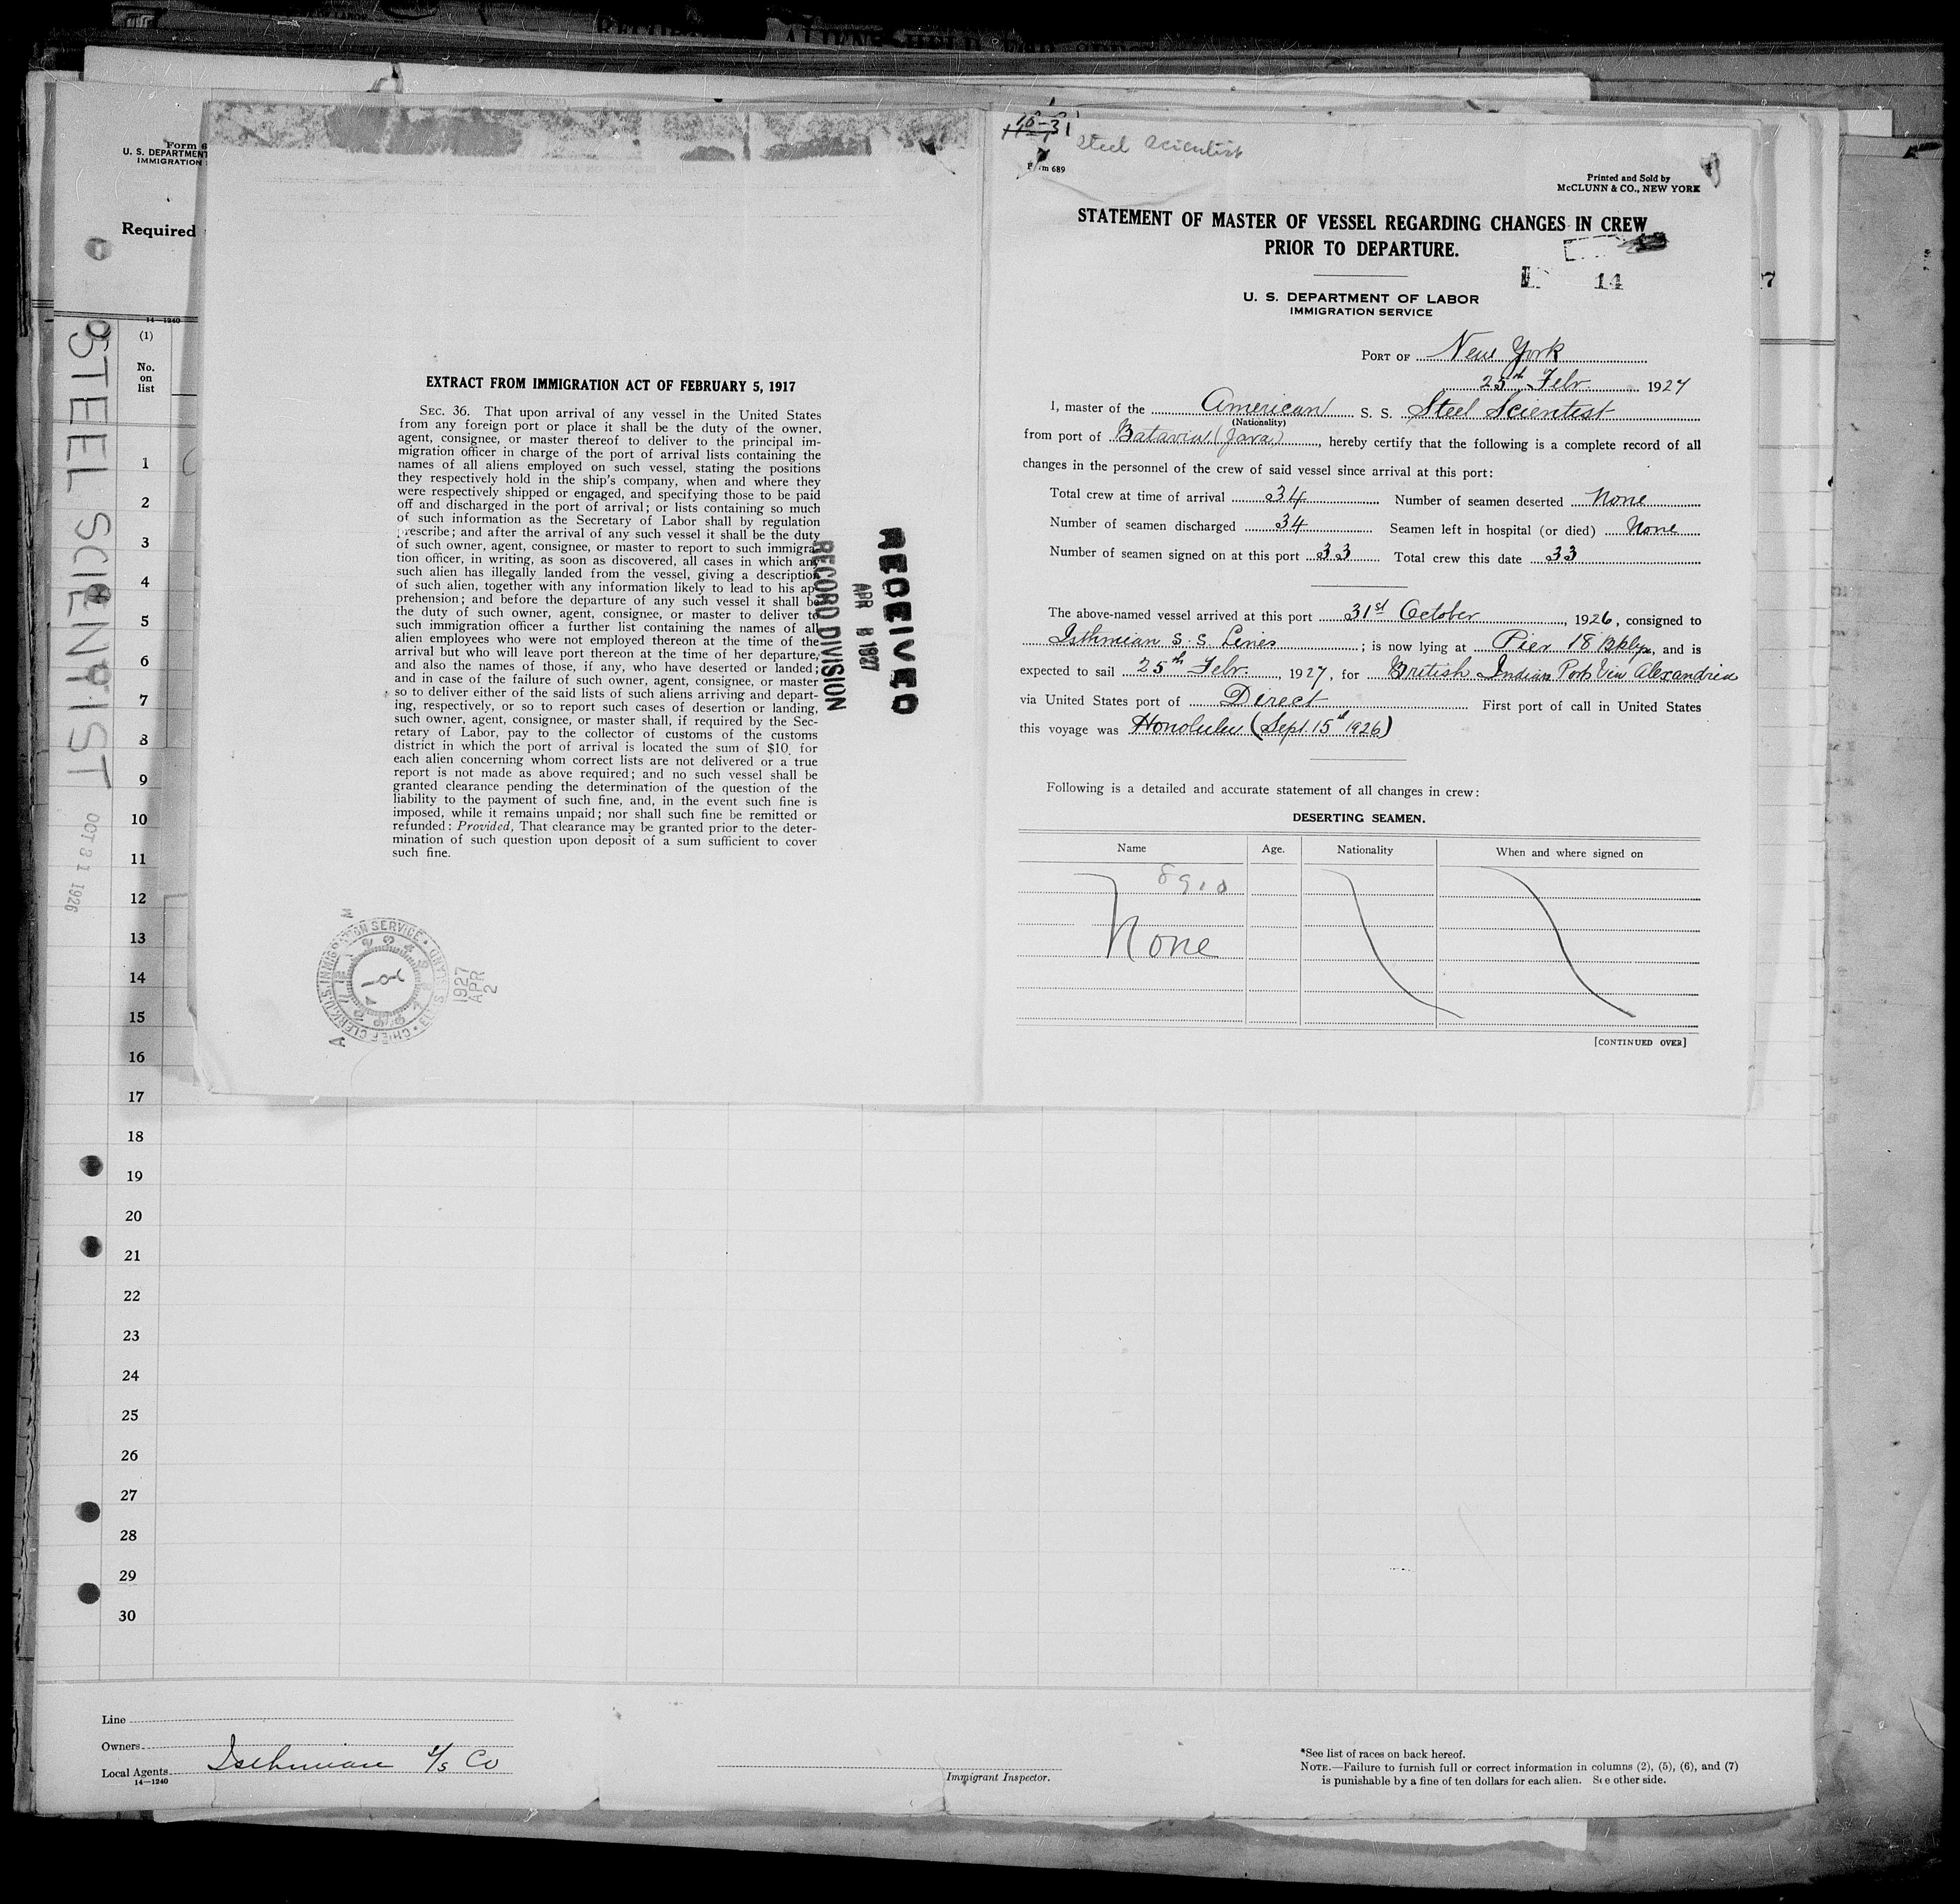 Form 6
U. S. DEPARTMENT
IMMIGRATION
Required
14—1240
(1)
No.
on
list
1
2
3
4
5
6
7
8
9
10
11
12
13
14
15
16
17
18
19
20
21
22
23
24
25
26
27
28
29
30
STEEL SCIENTIST
OCT 31 1926
EXTRACT FROM IMMIGRATION ACT OF FEBRUARY 5, 1917
SEC. 36. That upon arrival of any vessel in the United States
from any foreign port or place it shall be the duty of the owner,
agent, consignee, or master thereof to deliver to the principal im-
migration officer in charge of the port of arrival lists containing the
names of all aliens employed on such vessel, stating the positions
they respectively hold in the ship's company, when and where they
were respectively shipped or engaged, and specifying those to be paid
off and discharged in the port of arrival; or lists containing so much
of such information as the Secretary of Labor shall by regulation
prescribe; and after the arrival of any such vessel it shall be the duty
of such owner, agent, consignee, or master to report to such immigra-
tion officer, in writing, as soon as discovered, all cases in which any
such alien has illegally landed from the vessel, giving a description
of such alien, together with any information likely to lead to his ap-
prehension; and before the departure of any such vessel it shall be
the duty of such owner, agent, consignee, or master to deliver to
such immigration officer a further list containing the names of all
alien employees who were not employed thereon at the time of the
arrival but who will leave port thereon at the time of her departure,
and also the names of those, if any, who have deserted or landed;
and in case of the failure of such owner, agent, consignee, or master
so to deliver either of the said lists of such aliens arriving and depart-
ing, respectively, or so to report such cases of desertion or landing,
such owner, agent, consignee, or master shall, if required by the Sec-
retary of Labor, pay to the collector of customs of the customs
district in which the port of arrival is located the sum of $10 for
each alien concerning whom correct lists are not delivered or a true
report is not made as above required; and no such vessel shall be
granted clearance pending the determination of the question of the
liability to the payment of such fine, and, in the event such fine is
imposed, while it remains unpaid; nor shall such fine be remitted or
refunded: Provided, That clearance may be granted prior to the deter-
mination of such question upon deposit of a sum sufficient to cover
such fine.
RECEIVED
APR 8 1927
RECORD DIVISION
U.S. IMMIGRATION SERVICE
CHIEF CLERK
1927
APR
2
Steel Scientist
Form 689
Printed and Sold by
McCLUNN & CO., NEW YORK
STATEMENT OF MASTER OF VESSEL REGARDING CHANGES IN CREW
PRIOR TO DEPARTURE.
14
U. S. DEPARTMENT OF LABOR
IMMIGRATION SERVICE
PORT OF New York
25th Febr. 1927
I, master of the American S. S. Steel Scientist
(Nationality)
from port of Batavia (Java), hereby certify that the following is a complete record of all
changes in the personnel of the crew of said vessel since arrival at this port:
Total crew at time of arrival 34 Number of seamen deserted None
Number of seamen discharged 34 Seamen left in hospital (or died) None
Number of seamen signed on at this port 33 Total crew this date 33
The above-named vessel arrived at this port 31st October, 1926, consigned to
Isthmian S. S. Lines; is now lying at Pier 18 Bklyn, and is
expected to sail 25th Febr., 1927, for British Indian Ports Via Alexandria
via United States port of Direct First port of call in United States
this voyage was Honolulu (Sept. 15th 1926)
Following is a detailed and accurate statement of all changes in crew:
DESERTING SEAMEN.
Name Age. Nationality When and where signed on
8910
None
[CONTINUED OVER]
Line
Owners
Local Agents Isthmian S/S Co
14—1240
Immigrant Inspector.
*See list of races on back hereof.
NOTE.—Failure to furnish full or correct information in columns (2), (5), (6), and (7)
is punishable by a fine of ten dollars for each alien. See other side.